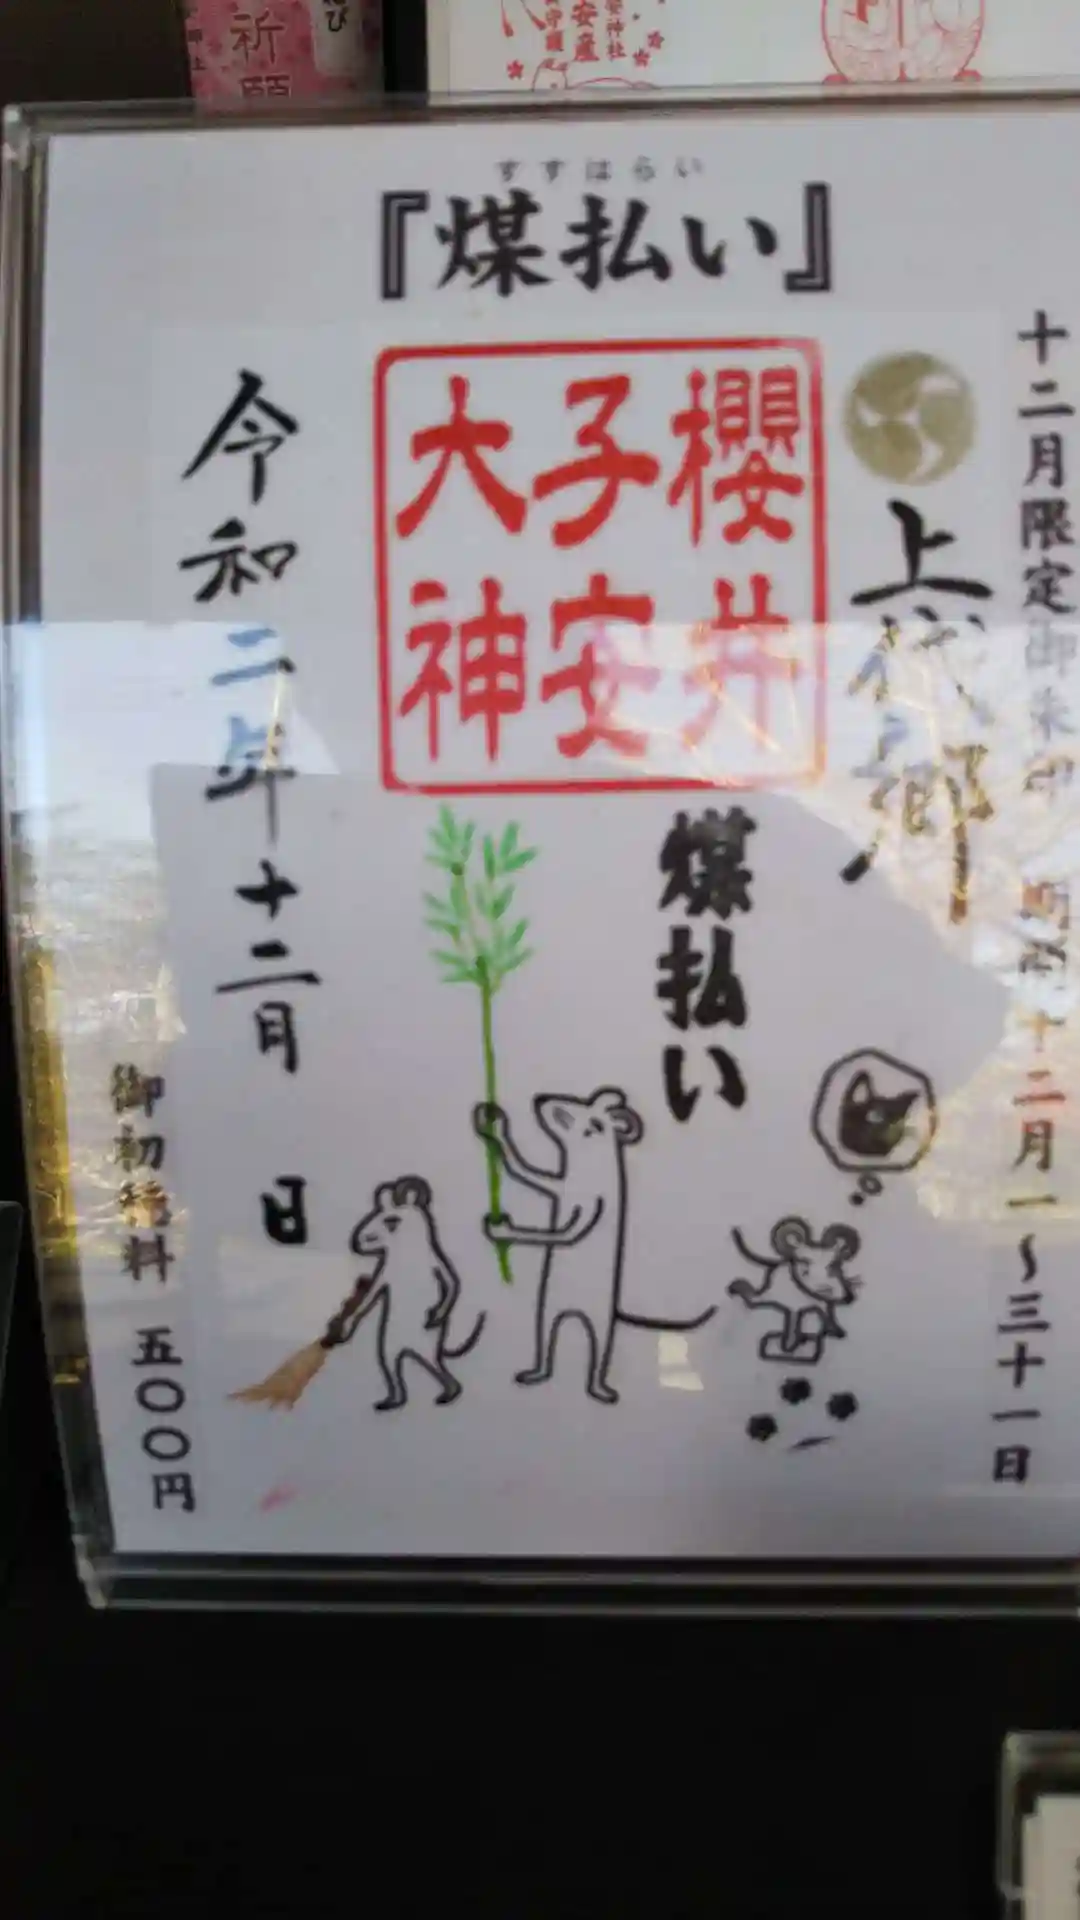 すすはらい
『煤払い』
十二月限定御朱印 期間十二月一~三十一日
上代郷
櫻井
子安
大神
煤払い
令和二年十二月 日
御初穂料 五〇〇円
祈願
安産